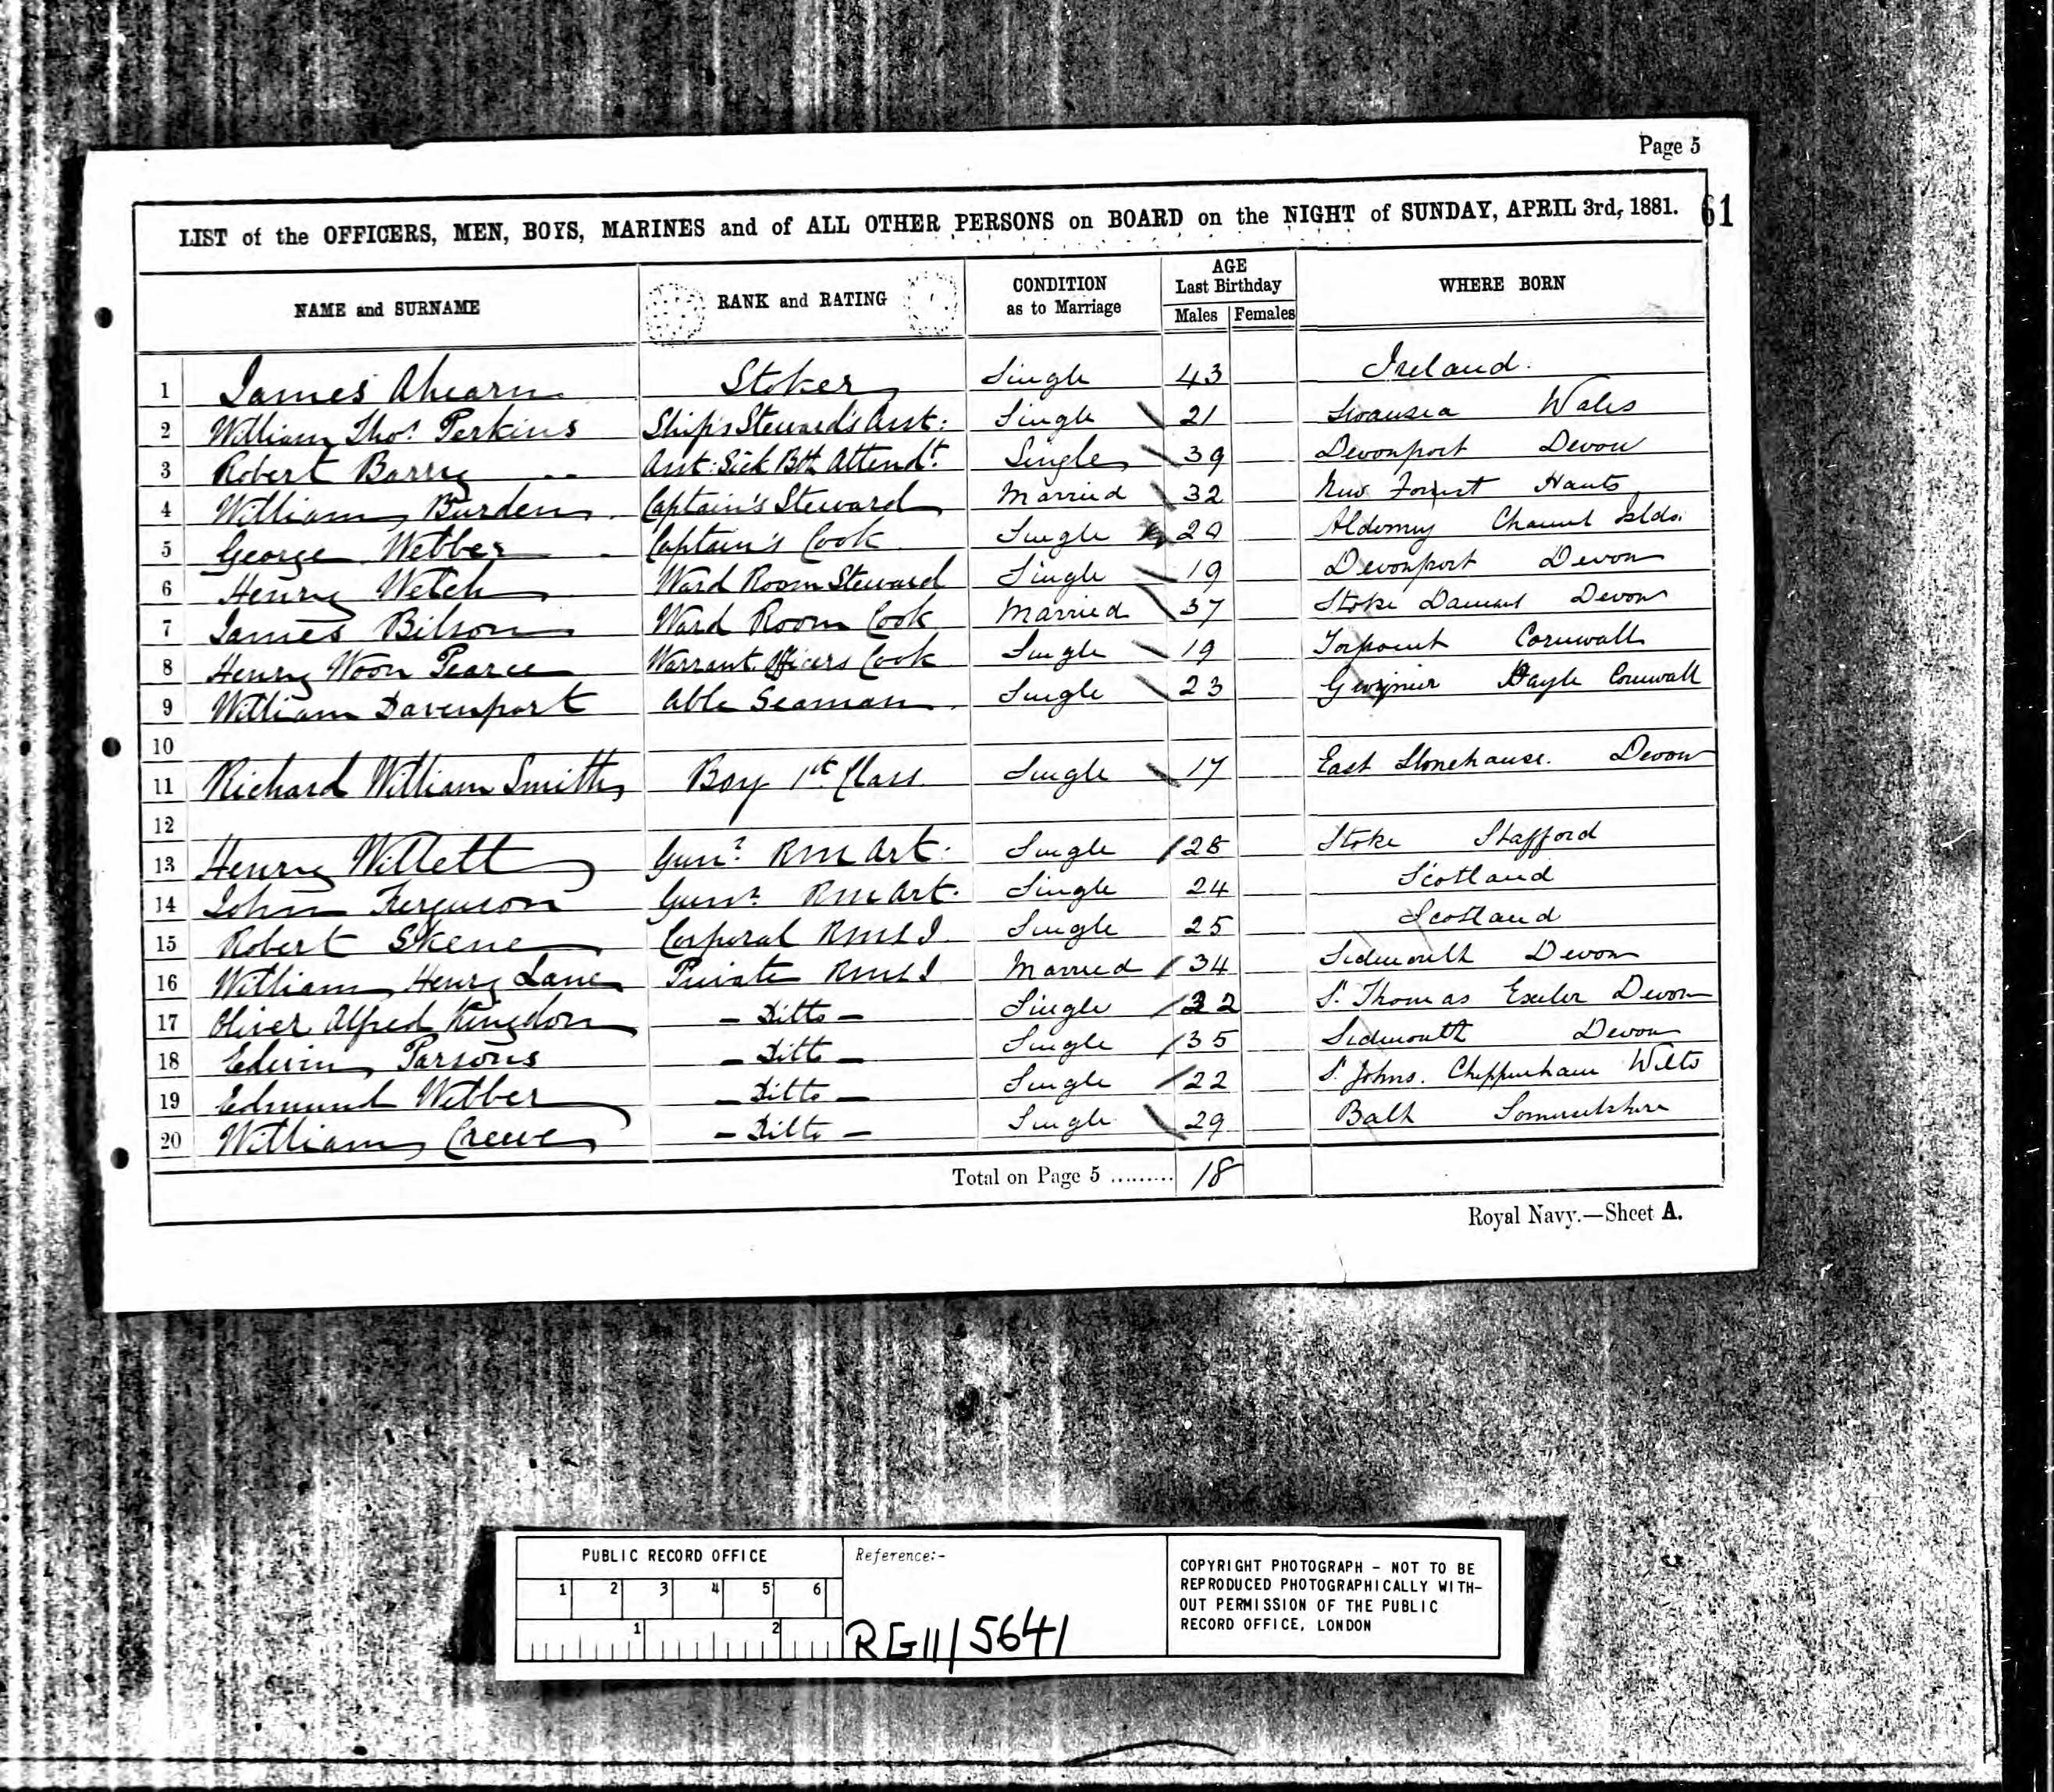 Page 5
61
LIST of the OFFICERS, MEN, BOYS, MARINES and of ALL OTHER PERSONS on BOARD on the NIGHT of SUNDAY, APRIL 3rd, 1881.
NAME and SURNAME RANK and RATING CONDITION as to Marriage AGE Last Birthday Males Females WHERE BORN
1 James Ahearn Stoker Single 43 Ireland.
2 William Thos. Perkins Ship's Steward's Asst: Single 21 Swansea Wales
3 Robert Barry Asst: Sick Bth Attendt. Single 39 Devonport Devon
4 William Burden Captain's Steward Married 32 New Forrest Hants
5 George Webber Captain's Cook Single Alderney Channel Islds.
6 Henry Welch Ward Room Steward Single 19 Devonport Devon
7 James Bilson Ward Room Cook Married 37 Stoke Damerel Devon
8 Henry Woon Pearce Warrant Officers Cook Single 19 Torpoint Cornwall
9 William Davenport Able Seaman Single 23 Hayle Cornwall
10
11 Richard William Smith Boy 1st Class Single 17 East Stonehouse. Devon
12
13 Henry Willett Gunr. RM Art. Single 28 Stoke Stafford
14 John Ferguson Gunr. RM Art. Single 24 Scotland
15 Robert Skene Corporal RMLI Single 25 Scotland
16 William Henry Lane Private RMLI Married 34 Sidmouth Devon
17 Oliver Alfred Kingdon - Ditto - Single 22 St. Thomas Exeter Devon
18 Edwin Parsons - Ditto - Single 35 Sidmouth Devon
19 Edmund Webber - Ditto - Single 22 St. Johns. Chippenham Wilts
20 William Crewe - Ditto - Single 29 Bath Somersetshire
Total on Page 5 ......... 18
Royal Navy.—Sheet A.
PUBLIC RECORD OFFICE
1 2 3 4 5 6
1 2
Reference:-
RG11/5641
COPYRIGHT PHOTOGRAPH - NOT TO BE
REPRODUCED PHOTOGRAPHICALLY WITH-
OUT PERMISSION OF THE PUBLIC
RECORD OFFICE, LONDON